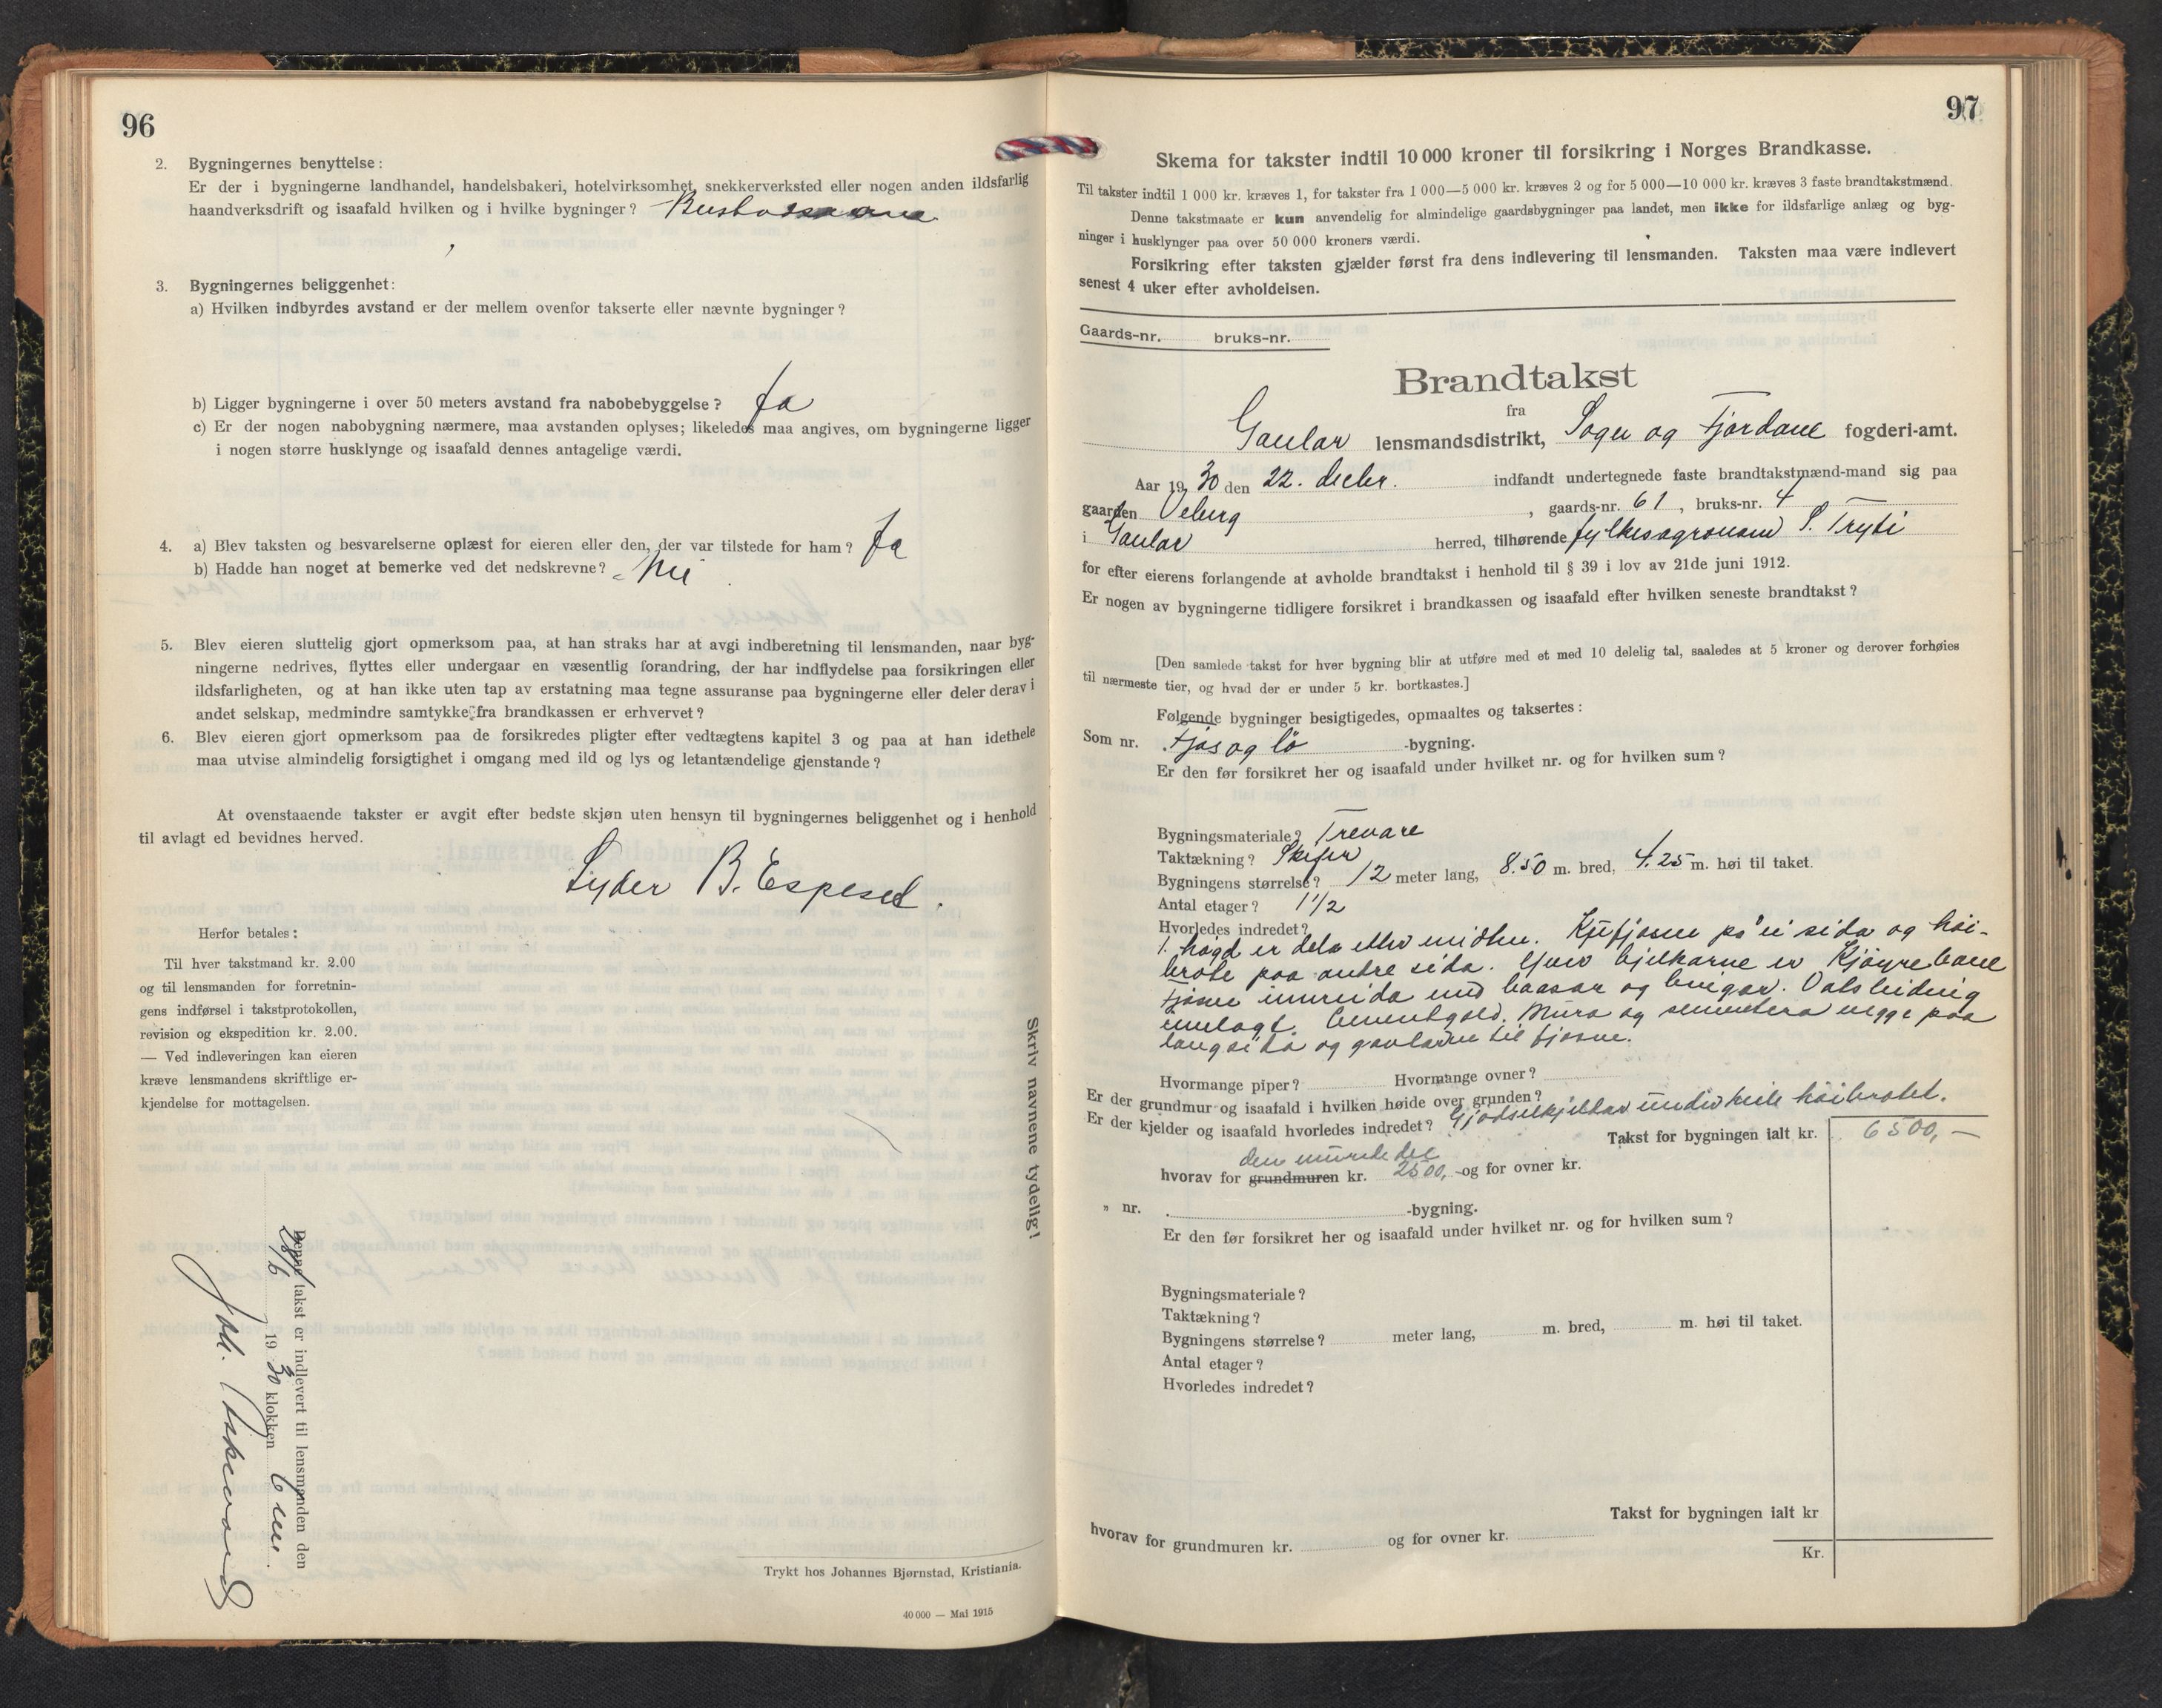 96
2. Bygningernes benyttelse:
Er der i bygningerne landhandel, handelsbakeri, hotelvirksomhet, snekkerverksted eller nogen anden ildsfarlig
haandverksdrift og isaafald hvilken og i hvilke bygninger?
3. Bygningernes beliggenhet:
a) Hvilken indbyrdes avstand er der mellem ovenfor takserte eller nævnte bygninger?
b) Ligger bygningerne i over 50 meters avstand fra nabobebyggelse? Ja
c) Er der nogen nabobygning nærmere, maa avstanden oplyses; likeledes maa angives, om bygningerne ligger
i nogen større husklynge og isaafald dennes antagelige værdi.
4. a) Blev taksten og besvarelserne oplæst for eieren eller den, der var tilstede for ham? Ja
b) Hadde han noget at bemerke ved det nedskrevne? Nei
5. Blev eieren sluttelig gjort opmerksom paa, at han straks har at avgi indberetning til lensmanden, naar byg-
ningerne nedrives, flyttes eller undergaar en væsentlig forandring, der har indflydelse paa forsikringen eller
ildsfarligheten, og at han ikke uten tap av erstatning maa tegne assuranse paa bygningerne eller deler derav i
andet selskap, medmindre samtykke fra brandkassen er erhvervet?
6. Blev eieren gjort opmerksom paa de forsikredes pligter efter vedtægtens kapitel 3 og paa at han idethele
maa utvise almindelig forsigtighet i omgang med ild og lys og letantændelige gjenstande?
At ovenstaaende takster er avgit efter bedste skjøn uten hensyn til bygningernes beliggenhet og i henhold
til avlagt ed bevidnes herved.
Lyder B. Espeset.
Herfor betales:
Til hver takstmand kr. 2.00
og til lensmanden for forretnin-
gens indførsel i takstprotokollen,
revision og ekspedition kr. 2.00.
— Ved indleveringen kan eieren
kræve lensmandens skriftlige er-
kjendelse for mottagelsen.
Skriv navnene tydelig!
Denne takst er indlevert til lensmanden den
28/6 1930 klokken 6 em.
Joh.
Trykt hos Johannes Bjørnstad, Kristiania.
40 000 — Mai 1915
97
Skema for takster indtil 10 000 kroner til forsikring i Norges Brandkasse.
Til takster indtil 1 000 kr. kræves 1, for takster fra 1 000—5 000 kr. kræves 2 og for 5 000—10 000 kr. kræves 3 faste brandtakstmænd.
Denne takstmaate er kun anvendelig for almindelige gaardsbygninger paa landet, men ikke for ildsfarlige anlæg og byg-
ninger i husklynger paa over 50 000 kroners værdi.
Forsikring efter taksten gjælder først fra dens indlevering til lensmanden. Taksten maa være indlevert
senest 4 uker efter avholdelsen.
Gaards-nr. bruks-nr.
Brandtakst
fra
Gaular lensmandsdistrikt, Sogn og Fjordane fogderi-amt.
Aar 1930 den 22. decbr. indfandt undertegnede faste brandtakstmænd-mand sig paa
gaarden Veberg, gaards-nr. 61, bruks-nr. 4
i Gaular herred, tilhørende fylkesagronom S. Tryti
for efter eierens forlangende at avholde brandtakst i henhold til § 39 i lov av 21de juni 1912.
Er nogen av bygningerne tidligere forsikret i brandkassen og isaafald efter hvilken seneste brandtakst?
[Den samlede takst for hver bygning blir at utføre med et med 10 delelig tal, saaledes at 5 kroner og derover forhøies
til nærmeste tier, og hvad der er under 5 kr. bortkastes.]
Følgende bygninger besigtigedes, opmaaltes og taksertes:
Som nr. Fjøs og lö -bygning.
Er den før forsikret her og isaafald under hvilket nr. og for hvilken sum?
Bygningsmateriale? Trevare
Taktækning? Skifer
Bygningens størrelse? 12 meter lang, 8.50 m. bred, 4.25 m. høi til taket.
Antal etager? 1 1/2
Hvorledes indredet?
1. høgd er dela etter midten. Kufjøsen på ei sida og höi-
brote paa andre sida. Yver bjelkarne er Kjöyrebane
Fjösen innreida med baasar og bingar. Vatsleidnig
innlagt. Cementgolv. Mura og sementera vegge paa
langsida og gavlarne til fjøsne.
Hvormange piper? Hvormange ovner?
Er der grundmur og isaafald i hvilken høide over grunden?
Er der kjelder og isaafald hvorledes indredet? Gjødselkjeldar under heile höibrotet.
Takst for bygningen ialt kr. 6500,—
den murede del
hvorav for grundmuren kr. 2500,- og for ovner kr.
„ nr. -bygning.
Er den før forsikret her og isaafald under hvilket nr. og for hvilken sum?
Bygningsmateriale?
Taktækning?
Bygningens størrelse? meter lang, m. bred, m. høi til taket.
Antal etager?
Hvorledes indredet?
Takst for bygningen ialt kr
hvorav for grundmuren kr. og for ovner kr.
Kr.